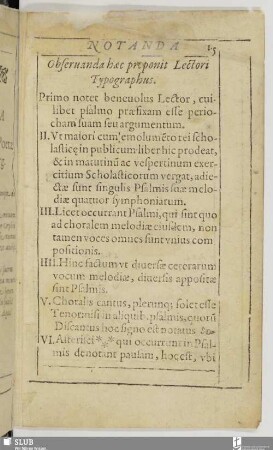 NOTANDA
15
Obseruanda hæc proponit Lectori
Typographus.
Primo notet beneuolus Lector, cui-
libet psalmo præfixam esse perio-
cham suam seu argumentum.
II. Vt maiori cum emolumẽto rei scho-
lasticę in publicum liber hic prodeat,
& in matutinū ac vespertinum exer-
citium Scholasticorum vergat, adie-
ctæ sunt singulis Psalmis suæ melo-
diæ quatuor symphoniarum.
III. Licet occurrant Psalmi, qui sint quo
ad choralem melodiæ eiusdem, non
tamen voces omnes sunt vnius com
positionis.
IIII. Hinc factum vt diuersæ ceterarum
vocum melodiæ, diuersis appositæ
sint Psalmis.
V. Choralis cantus, plerunq; solet esse
Tenor: nisi in aliquib. psalmis, quorū
Discantus hoc signo est notatus
VI. Asterisci *** qui occurrunt in Psal-
mis denotant pausam, hoc est, vbi
SLUB